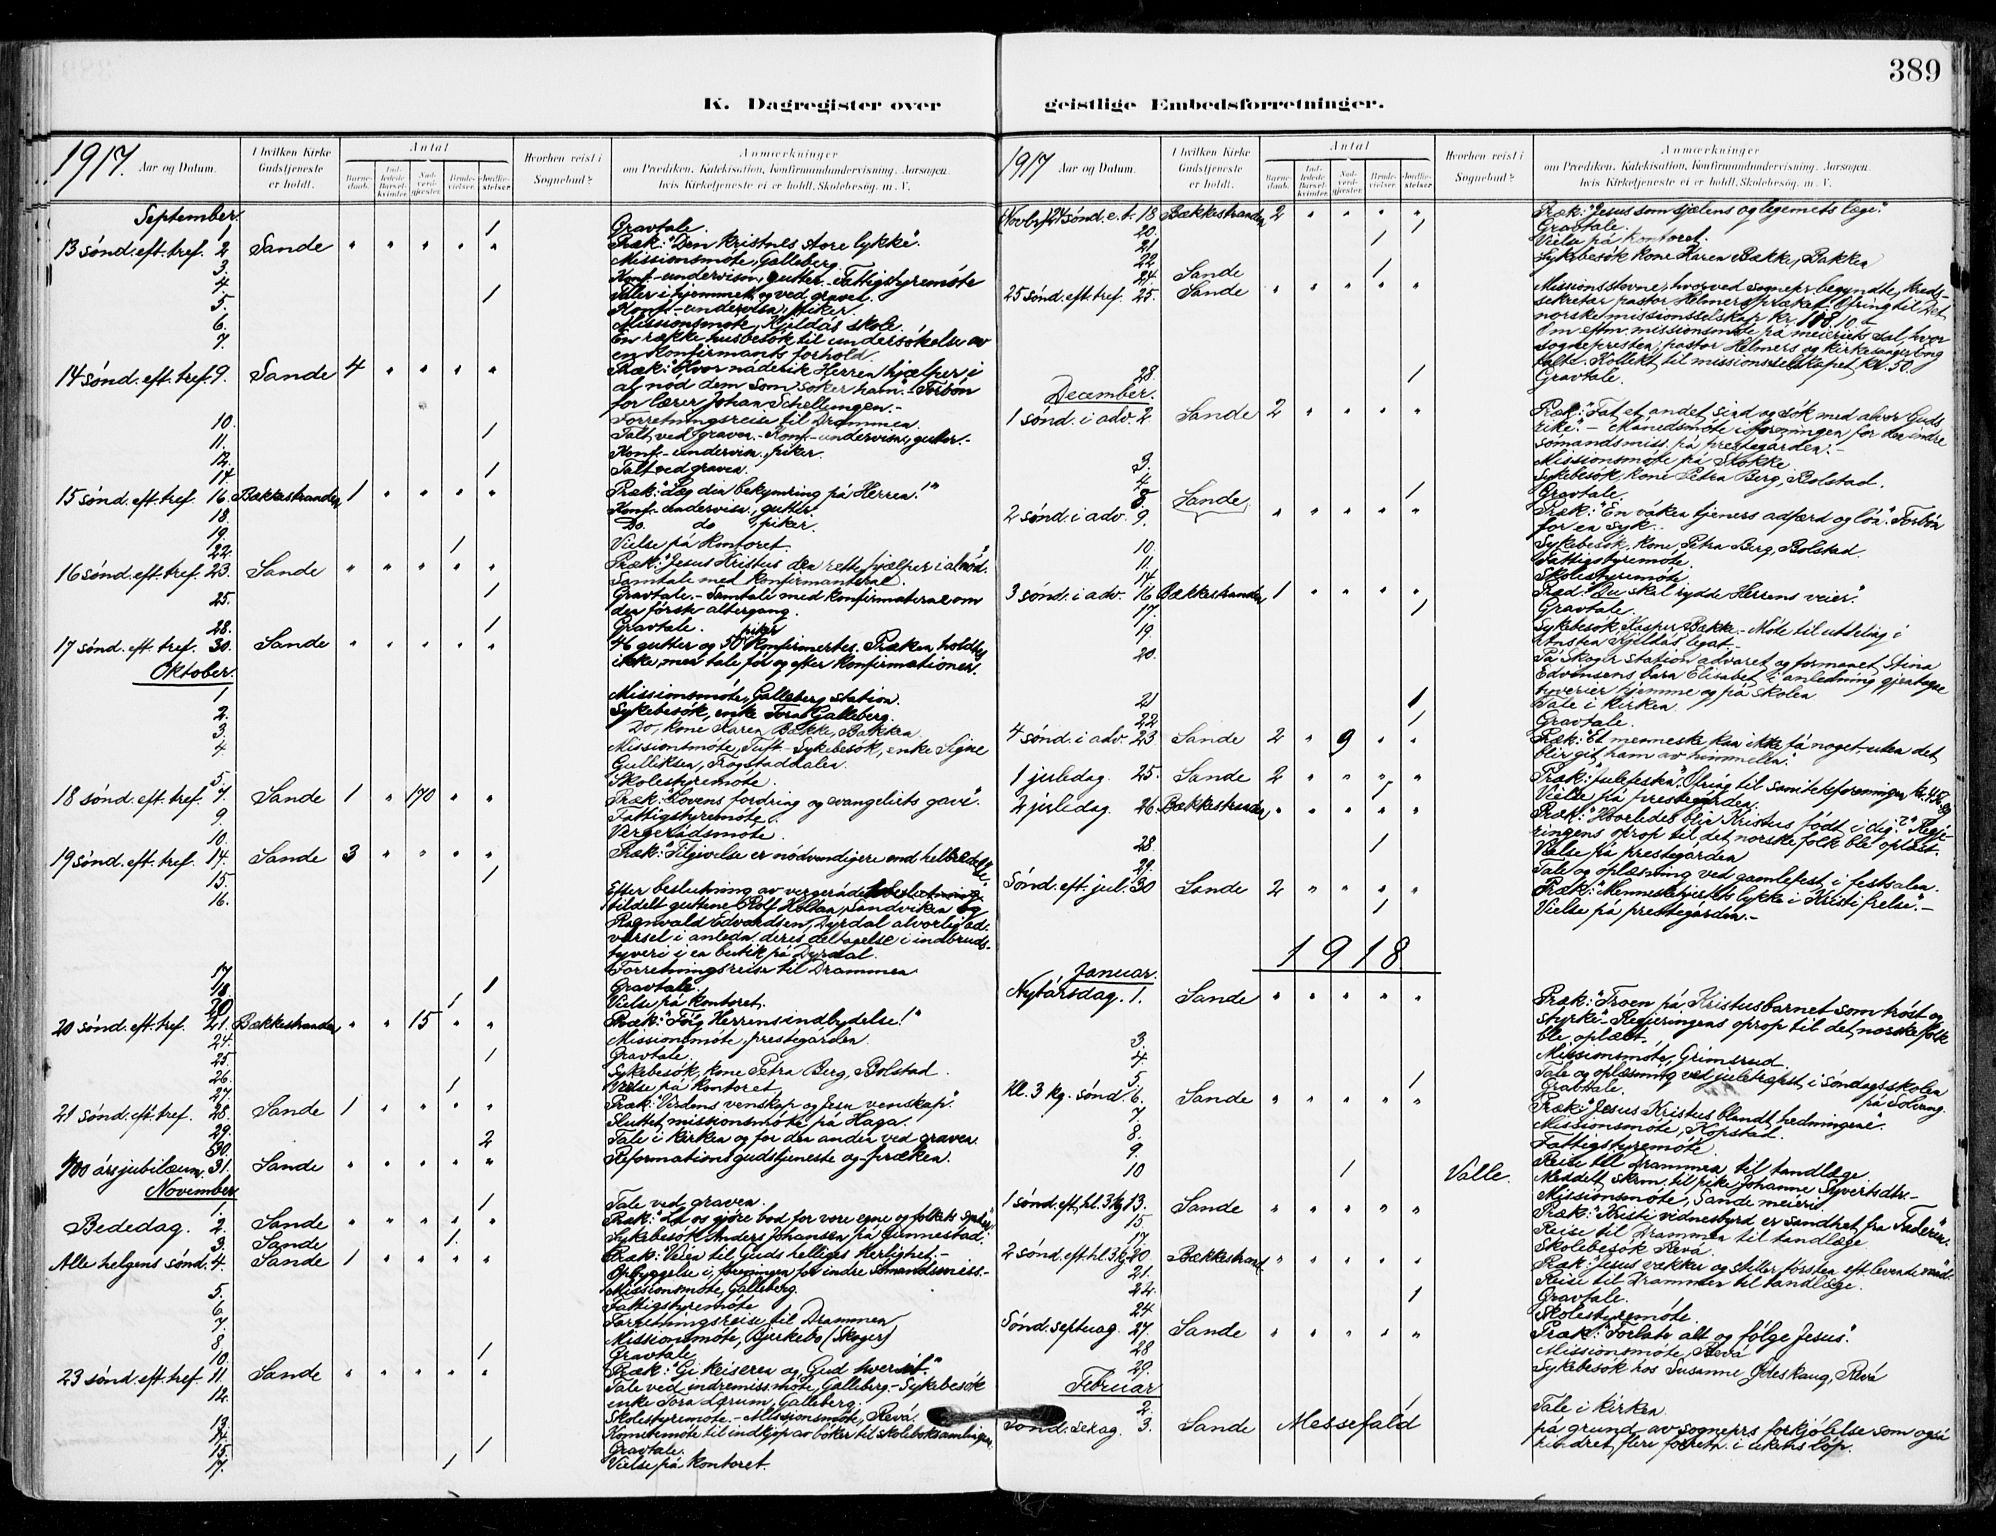 389
K. Dagregister over geistlige Embedsforretninger.
1917. Aar og Datum. I hvilken Kirke Gudstjeneste er holdt. Antal Barnedaab. Indledede Barselkvinder. Nadverdgjester. Brudevielser. Jordfæstelser. Hvorhen reist i Sognebud? Anmærkninger om Prædiken, Katekisation, Konfirmandundervisning, Aarsagen, hvis Kirketjeneste ei er holdt, Skolebesøg, m. V.
September.
1 1 Gravtale.
13 sønd. eft. tref. 2 Sande " " " " " Præk: "Den kristnes store lykke".
3. Missionsmöte, Galleberg.
4. Konf.-undervisn., gutter. Fattigstyremöte
5. 1 Taler i hjemmet og ved graven.
Konf.-undervisn., piker.
6. Missionsmöte, Kjeldås skole.
7. En række husbesök til undersökelse av
en konfirmants forhold.
14 sønd. eft. tref. 9. Sande 4 " " " " Præk: "Hvor nåderik Herren hjælper i
al nöd dem som söker ham". Forbön
for lærer Johan Schellungen.-
10. Forretningsreise til Drammen.
11. 1 Talt ved graven.- Konf.-undervisn., gutter.-
12. Konf.-undervisn., piker.
14. 1 Talt ved graven.
15 sønd. eft. tref. 16. Bækkestranden 1 " " " " Præk: "Læg din bekymring på Herren!"
18. Konf.-undervisn., gutter.
19. Do. do piker.
22. 1 Vielse på kontoret.
16 sønd. eft. tref. 23. Sande " " " " " Præk: "Jesus Kristus den rette hjælper i al nöd".
Samtale med konfirmanterne.
25. 1 Gravtale.- Samtale med konfirmanterne om
den förste altergang.
28. 1 Gravtale.
17 sønd. eft. tref. 30. Sande " " " " " 46 gutter og 50 piker konfirmertes. Præken holdtes
ikke, men tale før og efter konfirmationen.
Oktober.
1 Missionsmöte, Galleberg station.
2. Sykebesök, enke Tora Galleberg.
3. Do, kone Karen Bække, Bakken
4 Missionsmöte, Tuft.- Sykebesök, enke Signe
Gulliksen, Fragstaddalen.
5. Skolestyremöte.
18 sønd. eft. tref. 7. Sande 1 " 170 " " Præk: "Lovens fordring og evangeliets gave".
9. Fattigstyremöte.
10. Vergerådsmöte.
19 sønd. eft. tref. 14. Sande 3 " " " " Præk: "Tilgivelse er nödvendigere end helbredelse".
15. 1
16. Efter beslutning av vergerådet
tildelt guttene Rolf Holtan, Sandviken og
Ragnvald Edvardsen, Dyrdal alvorlig ad-
varsel i anledn. deres deltagelse i indbruds-
tyveri i en butik på Dyrdal.
17 Forretningsreise til Drammen
18 1 Gravtale.
20 1 Vielse på kontoret.
20 sønd. eft. tref. 21. Bækkestranden " " 15 " " Præk: "Fölg Herrens indbydelse!"
24. Missionsmöte, prestegården.
25 1 Gravtale.
26. Sykebesök, kone Petra Berg, Bolstad.
27. 1 Vielse på kontoret
21 sønd. eft. tref. 28. Sande 1 " " " " Præk: "Verdens venskap og Jesu venskap".
29. Sluttet missionsmöte på Haga.
30. 2 Tale i kirken og for den anden ved graven.
400 årsjubilæum. 31. Sande " " " " " Reformationsgudstjeneste og -præken.
November
1. 1 Tale ved graven.
Bededag. 2. Sande " " " " " Præk: "Lad os gjöre bod for vore egne og folkets synder".
3. Sande 1 Sykebesök Anders Johansen på Gunnestad.
Alle helgens sønd. 4. Sande 1 " " " " Præk: "Veien til Guds helliges herlighet.-
Opbyggelse i foreningen for indre Sömandsmiss.-
5. Missionsmöte, Galleberg.
6. Fattigstyremöte
7. Forretningsreise til Drammen
8 Missionsmöte, Bjerkebo (Skoger)
10. 1 Gravtale
23 sønd. eft. tref. 11. Sande " " " " " Præk: "Gi keiseren og Gud hver sit"
12. Tale ved indremiss.möte, Galleberg.- Sykebesök
enke Tora Lærum, Galleberg.
13. Skolestyremöte.- Missionsmöte, Revå.
14. Komitemöte til indkjöp av böker til skoleboksamlingen.
15. 1 Gravtale.
17. 1 Vielse på kontoret.
1917 Aar og Datum. I hvilken Kirke Gudstjeneste er holdt. Antal Barnedaab. Indledede Barselkvinder. Nadverdgjester. Brudevielser. Jordfæstelser. Hvorhen reist i Sognebud? Anmærkninger om Prædiken, Katekisation, Konfirmandundervisning, Aarsagen, hvis Kirketjeneste ei er holdt, Skolebesøg, m. V.
(Novbr.) 24 sønd. e. t. 18 Bækkestranden 2 " " " " Præk: "Jesus som sjælens og legemets læge".
20. 1 Gravtale.
21 1 Vielse på kontoret.
22 Sykebesök kone Karen Bække, Bakken
24. Sande 1
25 sønd. eft. tref. 25. Sande " " " " " Missionsstevne, hvorved sognepr. begyndte, kreds-
sekretær pastor Helmers præket. Ofring til Det
norske missionsselskap kr 188.10.
Om eftm. missionsmöte på meieriets sal, hvor
sognepresten, pastor Helmers og kirkesanger Eng
talte. Kollekt til missionsselskapet kr. 50.
28. 1 Gravtale.
December.
1 sønd. i adv. 2. Sande 2 " " " " Præk: "Fat et andet sind og sök med alvor Guds
rike".- Månedsmöte i foreningen for den indre
sömandsmiss. på prestegården.-
3. Missionsmöte på Stokke
4. Sykebesök, kone Petra Berg, Bolstad.
8. Sande 1 Gravtale.
2 sønd. i adv. 9. " " " " " Præk: "En våken tjeners adfærd og lön". Forbön
for en syk.
10. Sykebesök, kone Petra Berg, Bolstad.
11. Fattigstyremöte.
14 Skolestyremöte.
3 sønd. i adv. 16 Bækkestranden 1 " " " " Præd: "Du skal rydde Herrens veier".
17 1 Gravtale.
19. Sykebesök Kasper Bække.- Möte til utdeling i
Ansten Kjeldås legat.-
20. På Skoger station advaret og formanet Stina
Edvensens Sara Elisabet i anledning gjentagne
tyverier hjemme og på skolen
21 1 Tale i kirken.
22 1 Gravtale.
4 sønd. i adv. 23 Sande 2 " 9 " " Præk: "Et menneske kan ikke få noget, uten det
blir git ham av himmelen".
1 juledag. 25. Sande 2 " " " " Præk: "Julefesten". Ofring til
1 Vielse på prestegården.
2 juledag. 26. Bækkestranden " " " " " Præk: "Hvorledes blir Kristus født i dig?" Regje-
ringens oprop til det norske folk ble oplæst.
28. 1 Vielse på prestegården
29. Tale og oplæsning ved gamlefest i festsalen.
Sønd. eft. jul. 30 Sande 2 " " " " Præk: "Menneskelivets lykke i Kristi frelse".-
1 Vielse på prestegården.-
1918
Januar.
Nytårsdag. 1. Sande " " " " " Præk: "Troen på Kristusbarnet som tröst og
styrke".- Regjeringens oprop til det norske folk
ble oplæst.
3. Missionsmöte, Grimsrud.
4. Tale og oplæsning ved juletræfest i söndagsskolen
på Solvang.
5 1 Gravtale.
Hl. 3 kg. sønd. 6. Sande " " " " " Præk: "Jesus Kristus blandt hedningene".
7. Missionsmöte, Kopstad.
8. Fattigstyremöte.
9. Reise til Drammen til tandlæge
10 1 Valle. Meddelt skrm. til pike Johanne Syvertsdtr.-
Missionsmöte, Sande meieri.
1 sønd. eft. hl. 3 kg 13. Sande " " " " " Præk: "Kristi vidnesbyrd er sandhet fra Faderen".
15 Reise til Drammen til tandlæge
17 Skolebesök Revå.
2 sønd. eft. hl. 3 kg 20. Bækkestrand " " " " " Præk: "Jesus vækker og steller forsten eft. levende
21. Reise til Drammen til tandlæge.
24. 1 Gravtale.
24 Skolestyremöte.
Sønd. septuag. 27. Sande " " " " " Præk: "Forlate alt og fölge Jesus".
28 Missionsmöte, Revå
29. Sykebesök hos Susanne Ødeskaug, Revå
Februar
2. 1 Tale i kirken.
Sønd. seksag. 3. Sande Messefald på grund av sogneprs forkjölelse som også
hindret flere forretn. i ukens löp.